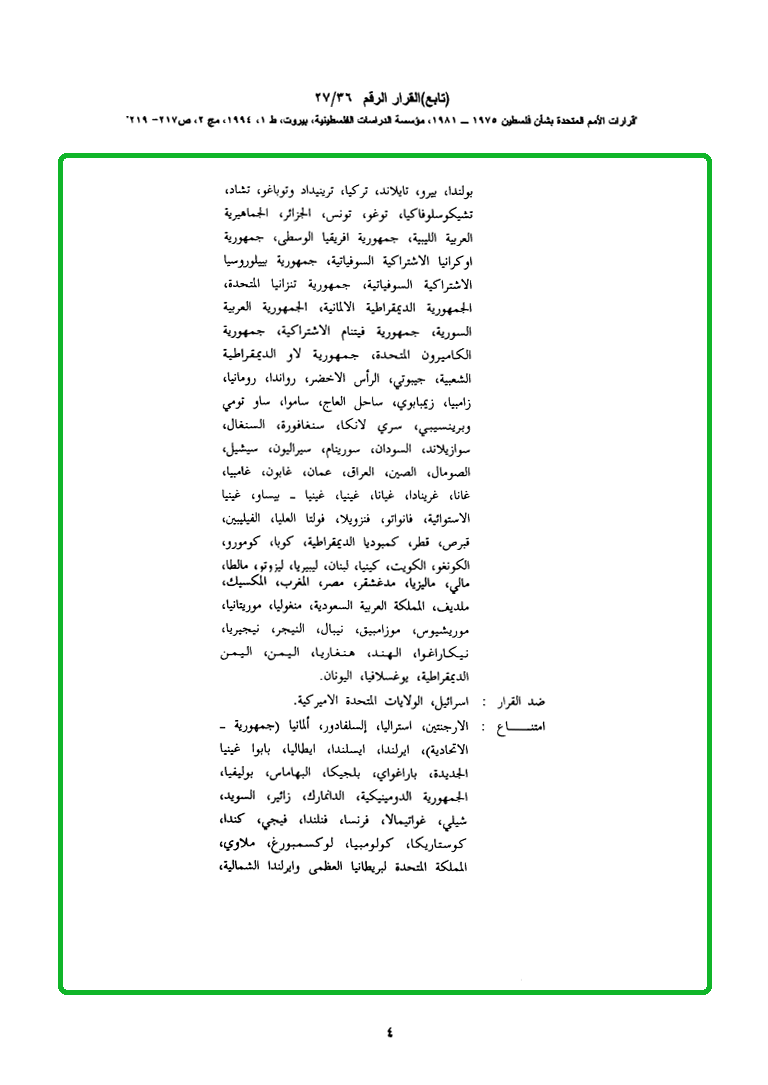 (تابع)القرار الرقم ٢٧/٣٦
"قرارات الأمم المتحدة بشأن فلسطين ١٩٧٥ – ١٩٨١، مؤسسة الدراسات الفلسطينية، بيروت، ط ١، ١٩٩٤، مج ٢، ص٢١٧- ٢١٩"
بولندا، بيرو، تايلاند، تركيا، ترينيداد وتوباغو، تشاد،
تشيكوسلوفاكيا، توغو، تونس، الجزائر، الجماهيرية
العربية الليبية، جمهورية افريقيا الوسطى، جمهورية
اوكرانيا الاشتراكية السوفياتية، جمهورية بييلوروسيا
الاشتراكية السوفياتية، جمهورية تنزانيا المتحدة،
الجمهورية الديمقراطية الالمانية، الجمهورية العربية
السورية، جمهورية فيتنام الاشتراكية، جمهورية
الكاميرون المتحدة، جمهورية لاو الديمقراطية
الشعبية، جيبوتي، الرأس الاخضر، رواندا، رومانيا،
زامبيا، زيمبابوي، ساحل العاج، ساموا، ساو تومي
وبرينسيبي، سري لانكا، سنغافورة، السنغال،
سوازيلاند، السودان، سورينام، سيراليون، سيشيل،
الصومال، الصين، العراق، عمان، غابون، غامبيا،
غانا، غرينادا، غيانا، غينيا، غينيا - بيساو، غينيا
الاستوائية، فانواتو، فنزويلا، فولتا العليا، الفيليبين،
قبرص، قطر، كمبوديا الديمقراطية، كوبا، كومورو،
الكونغو، الكويت، كينيا، لبنان، ليبيريا، ليزوتو، مالطا،
مالي، ماليزيا، مدغشقر، مصر، المغرب، المكسيك،
ملديف، المملكة العربية السعودية، منغوليا، موريتانيا،
موريشيوس، موزامبيق، نيبال، النيجر، نيجيريا،
نيكاراغوا، الهند، هنغاريا، اليمن، اليمن
الديمقراطية، يوغسلافيا، اليونان.
ضد القرار : اسرائيل، الولايات المتحدة الاميركية.
امتنـــــاع : الارجنتين، استراليا، إلسلفادور، ألمانيا (جمهورية -
الاتحادية)، ايرلندا، ايسلندا، ايطاليا، بابوا غينيا
الجديدة، باراغواي، بلجيكا، البهاماس، بوليفيا،
الجمهورية الدومينيكية، الدانمارك، زائير، السويد،
شيلي، غواتيمالا، فرنسا، فنلندا، فيجي، كندا،
كوستاريكا، كولومبيا، لوكسمبورغ، ملاوي،
المملكة المتحدة لبريطانيا العظمى وايرلندا الشمالية،
٤